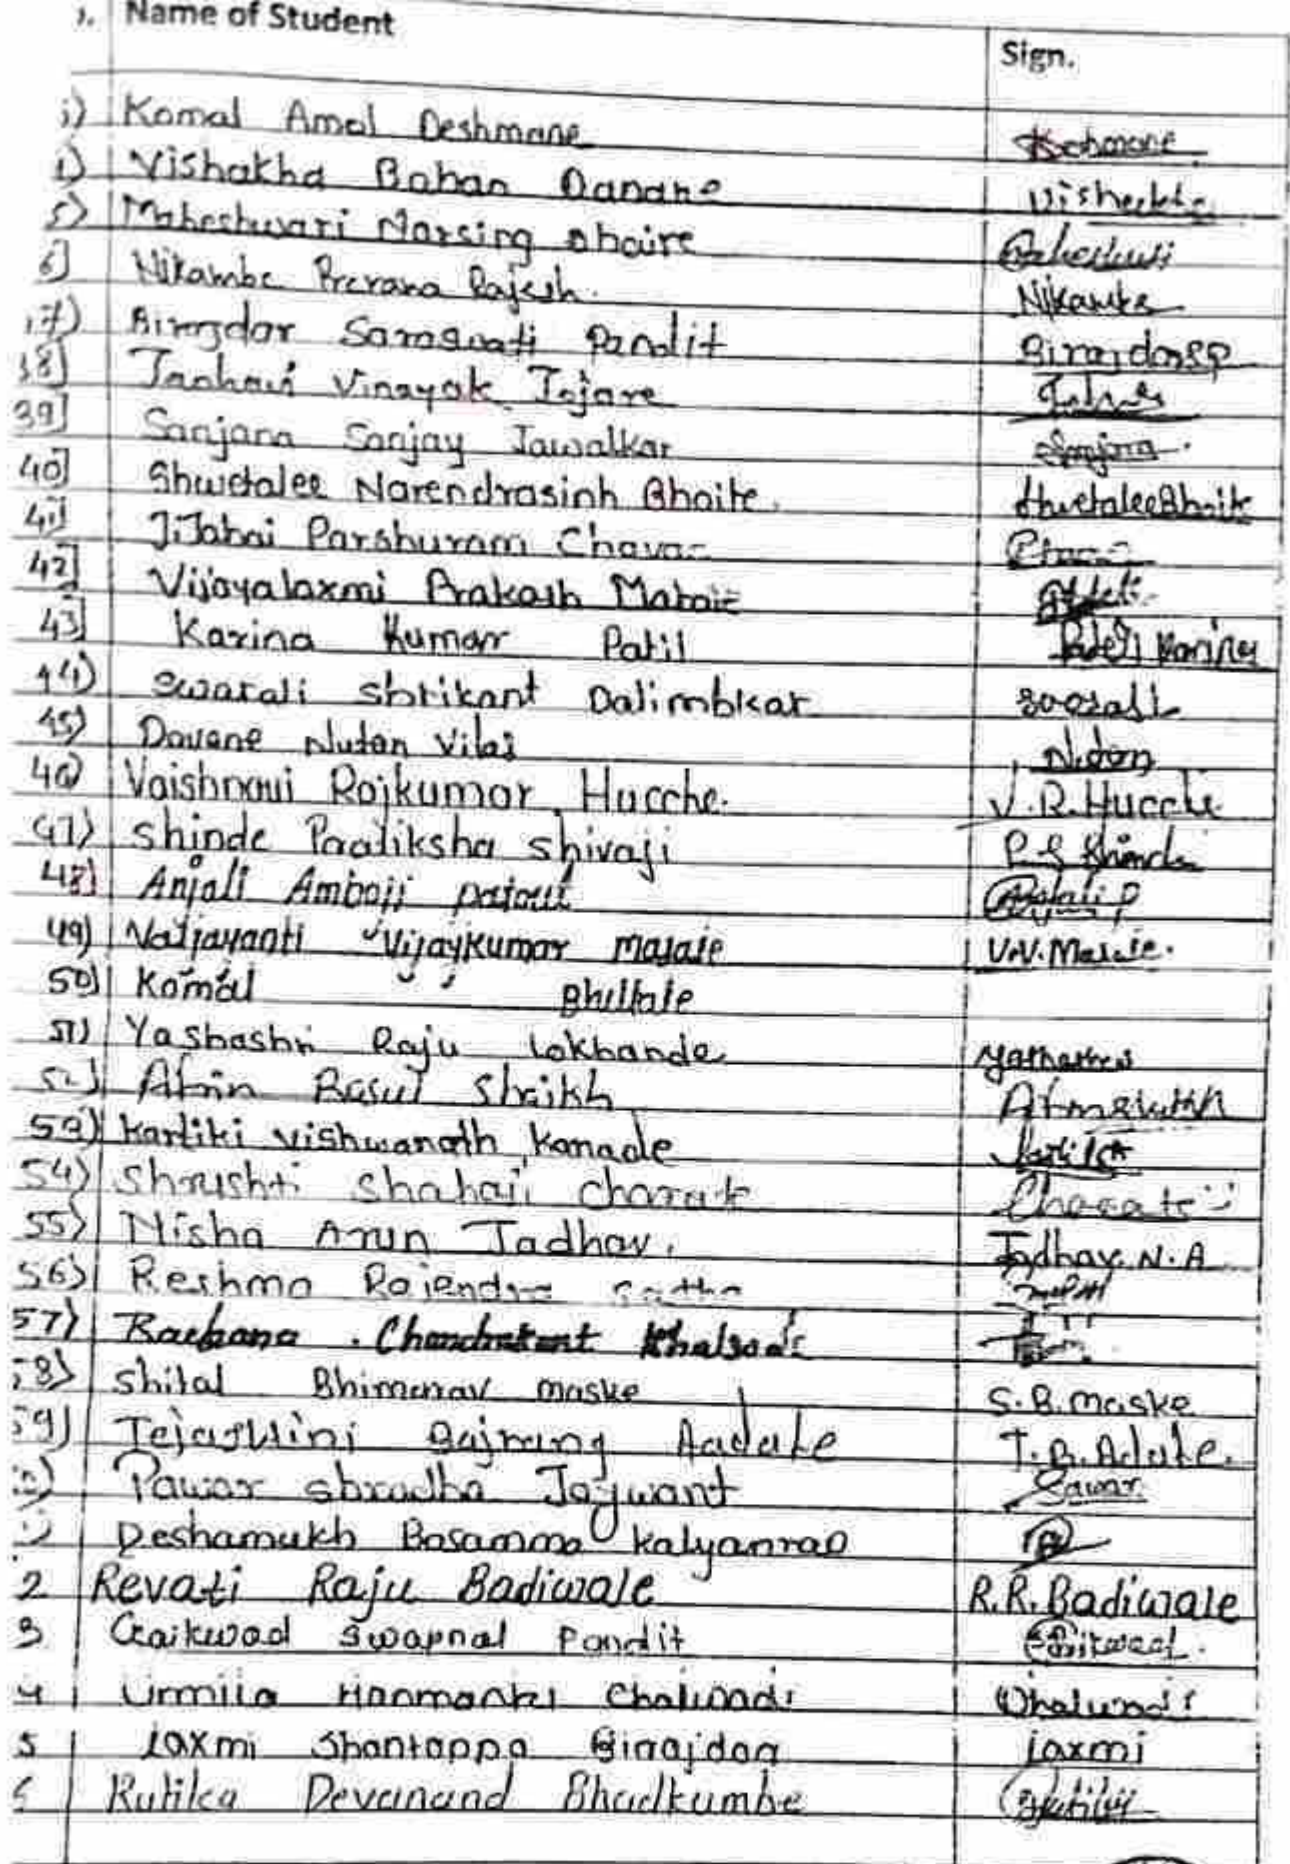 Name of Student Sign.
Komal Amol Deshmane
Vishakha Baban Danane Vishakha
5) Maheshwari Narsing Bhaire
6] Nikambe Prerana Rajesh. Nikambe
17) Birajdar Saraswati Pandit Birajdar SP
38] Janhavi Vinayak Jojare
39] Sanjana Sanjay Jawalkar Sanjana.
40] Shwetalee Narendrasinh Bhaite. Shwetalee Bhaite
41] JiJabai Parshuram Chavan
42] Vijayalaxmi Prakash
43] Karina Kumar Patil Patil Karina
44) Swarali Shrikant Dalimbkar Swarali
45) Davane Nutan Vilas Nutan
46) Vaishnavi Rajkumar Hucche. V.R.Hucche
47) Shinde Pratiksha Shivaji P S Shinde
48] Anjali Amboji
49) Vaijayanti Vijaykumar Masale V.V.Masale.
50] Komal
51) Yashashri Raju Lokhande Yashashri
52) Afrin Rasul Shaikh
53) Kartiki Vishwanath Kanade Kartiki
54) Shrushti Shahaji Charate Charate
55) Nisha Arun Jadhav. Jadhav. N. A
56) Reshma Rajendra
57) Rachana . Chandrakant
58) Shital Bhimarav Maske S.B.Maske
59) Tejaswini Bajrang Aadate T.B.Adate.
Pawar Shradha Jaywant Pawar
Deshamukh Basamma Kalyanrao
2 Revati Raju Badiwale R.R.Badiwale
3 Gaikwad Swapnal Pandit Gaikwad.
4 Urmila Hanmantu Chaluwadi
5 Laxmi Shantappa Birajdar Laxmi
6 Rutika Devanand Bhadkumbe Rutika